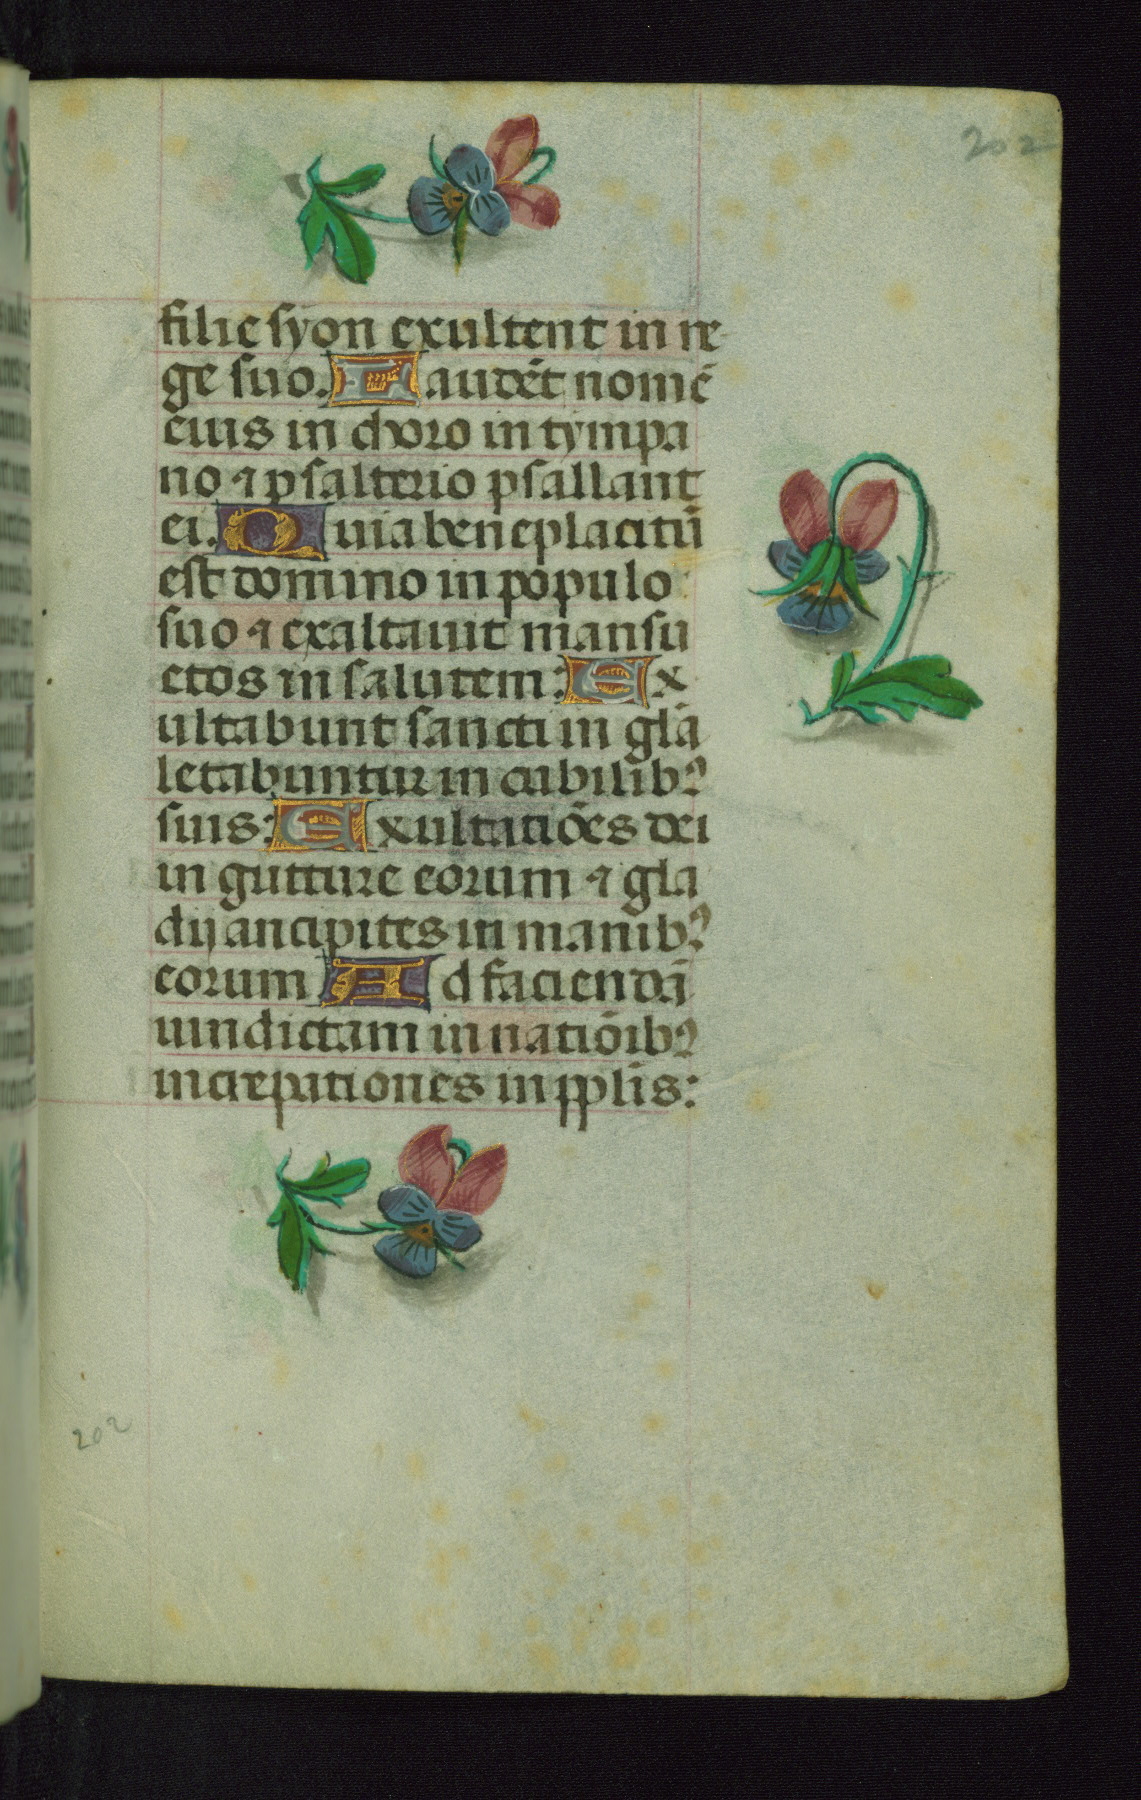 202
filie syon exultent in re-
ge suo. Laudẽt nomẽ
eius in choro in tympa
no ⁊ psalterio psallant
ei. Quia beneplacitũ
est domino in populo
suo ⁊ exaltauit mansu
etos in salutem: Ex
ultabunt sancti in gl̃a
letabuntur in cubilibꝰ
suis: Exultatiões dei
in gutture eorum ⁊ gla
dij ancipites in manibꝰ
eorum Ad faciendã
uindictam in natiõibꝰ
increpationes in ppl̃is:
202